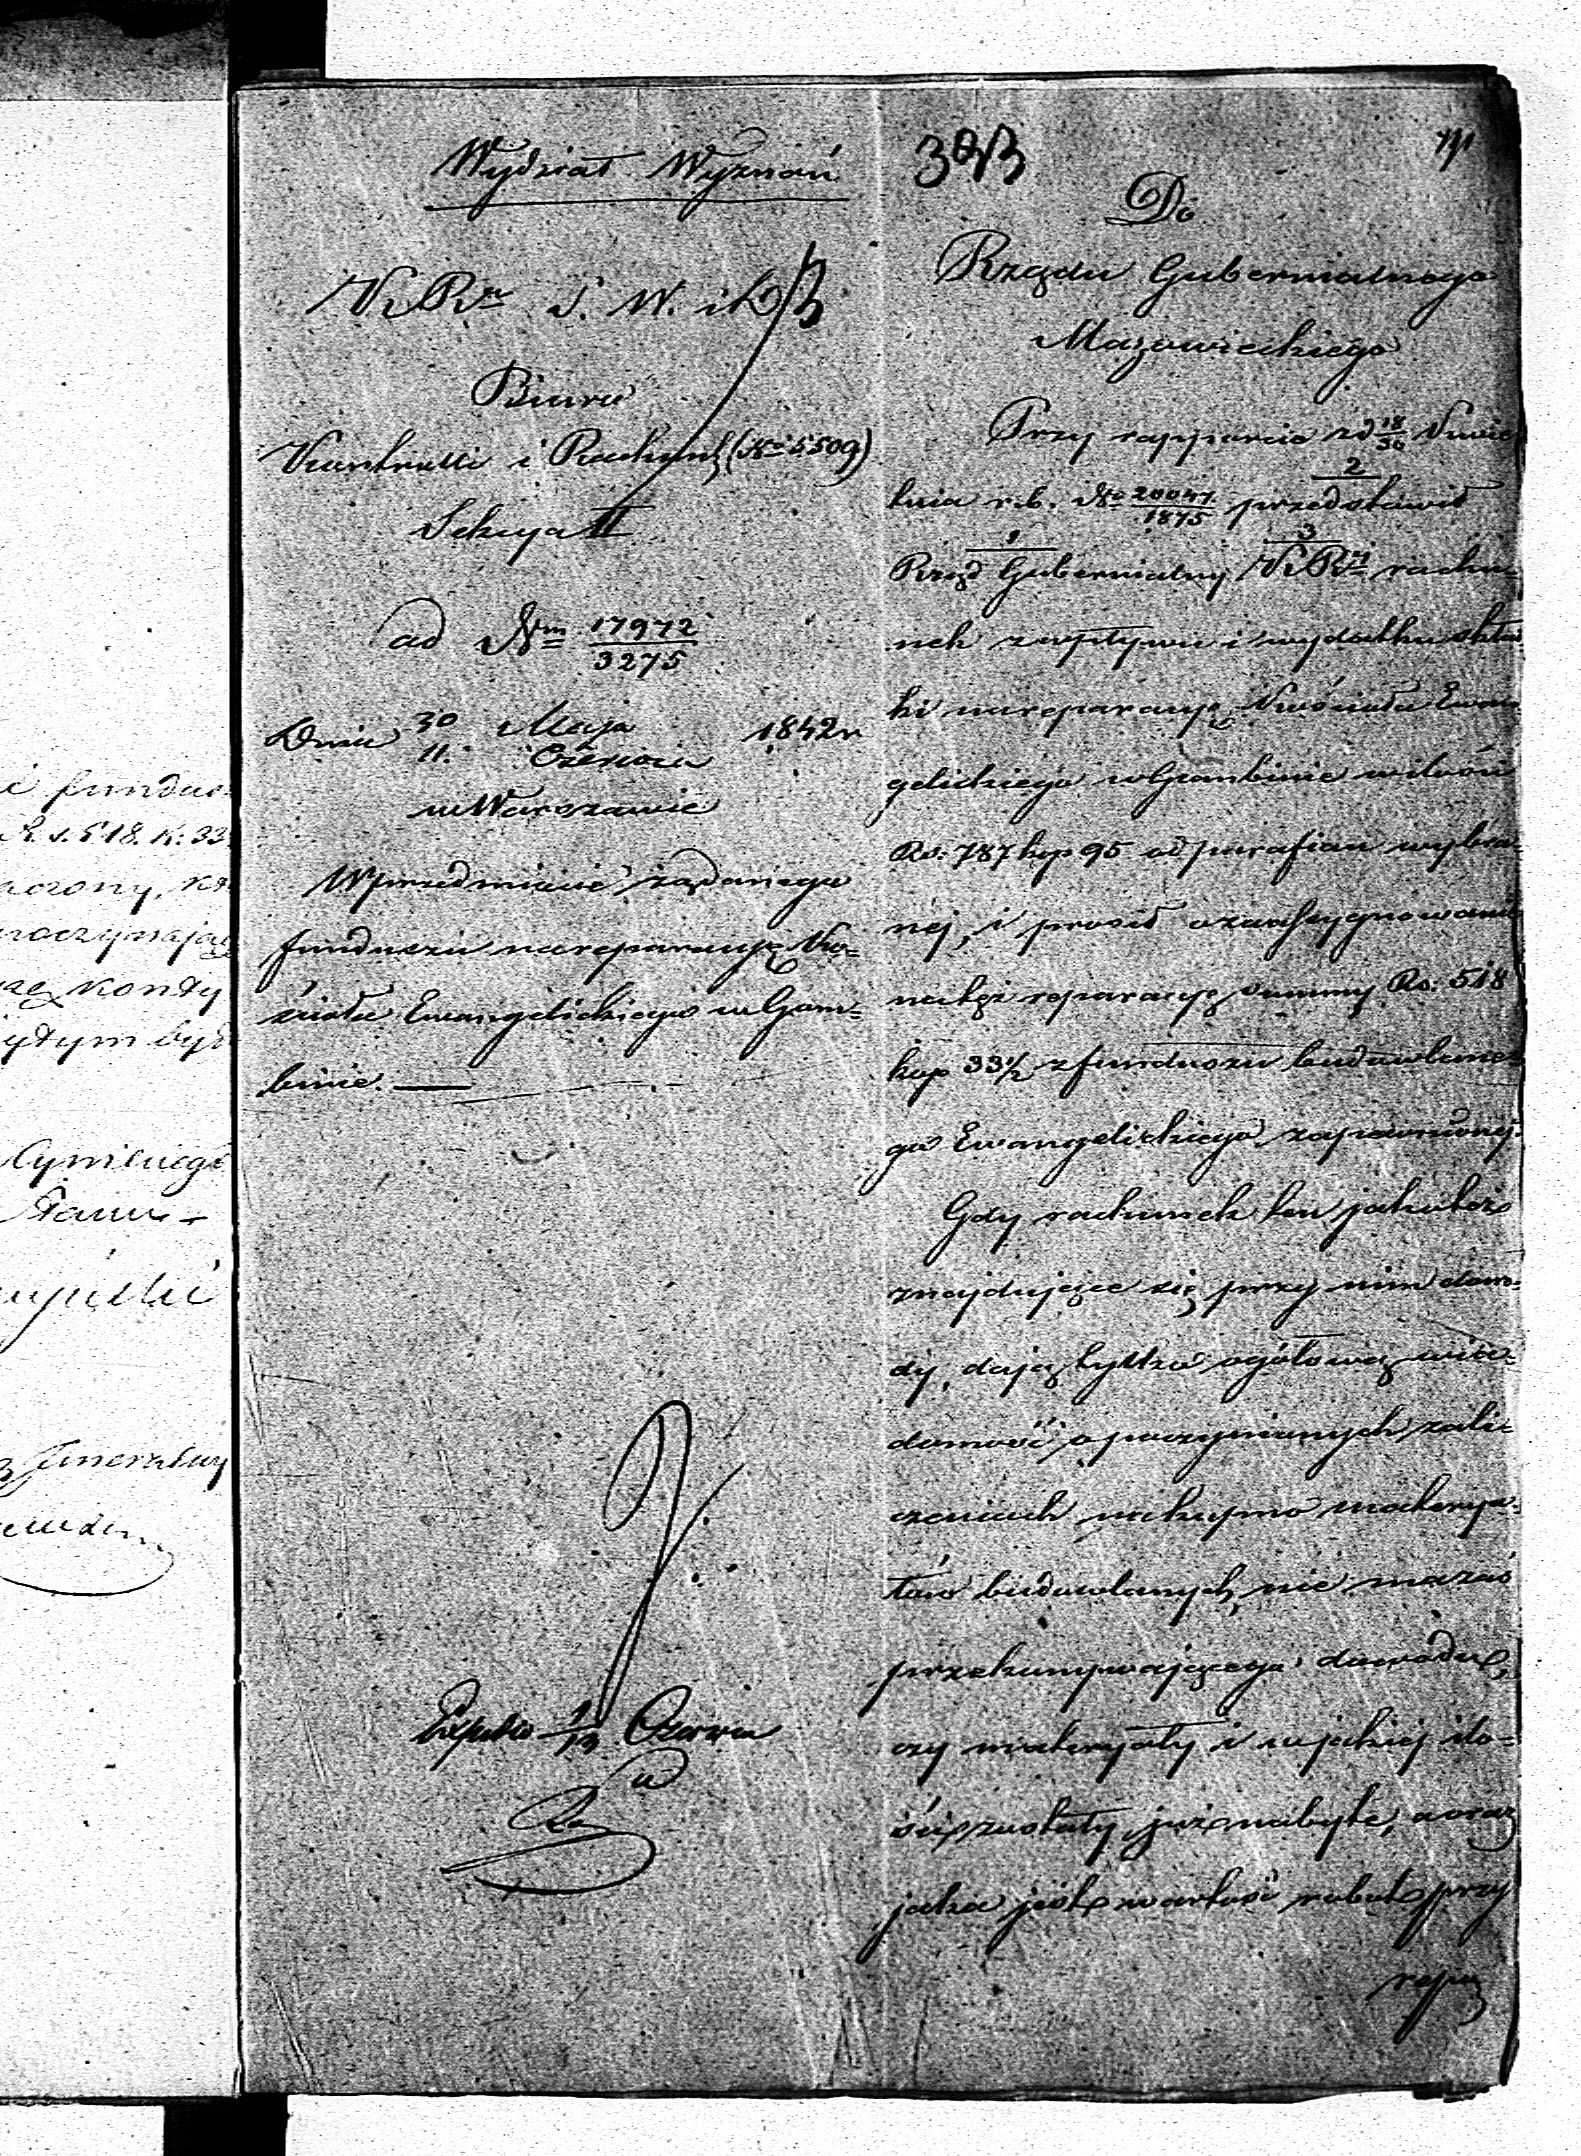 i fundu
R. s. 518. k. 33
kondy
był
Wydział Wyznań
K. R. S. W. i D.
Biuro
Kontrolli i Rachun. (No 5509)
Sekcya II
ad Nm 17972/3275
Dnia 30 Maja / 11 Czerwca 1842 r
w Warszawie
W przedmiocie żądanego
funduszu na reparacyę Ko=
ścioła Ewangelickiego w Gom=
binie. —
Expedio 1/13 Czerwca
Do
Rządu Gubernialnego
Mazowieckiego
Przy rapporcie z d 18/30 Kwie
tnia r. b. No 20047/1875 przedstawił
2
Rząd Gubernialny K. R. rachu=
1 3
nek z wpływu i wydatku skła=
ki na reparacyę Kościoła Ewan
gelickiego w Gombinie w ilości
Rs: 787 kop 95 od parafian wybra=
nej, i prosił o zaassygnowanie
na tęż reparacyę summy Rs: 518
kop 33 1/2 z funduszu budowlane=
go Ewangelickiego zapewnionej.
Gdy rachunek ten jako też
znajdujące się przy nim dowo=
dy, dają tylko ogółową wia=
domość o poczynionych zali=
czeniach na kupno materya=
łów budowlanych, nie ma zaś
przekonywającego dowodu,
czy materyały i w jakiej ilo=
ści zostały już nabyte, a oraz
jaka jest wartość robot przy
repa